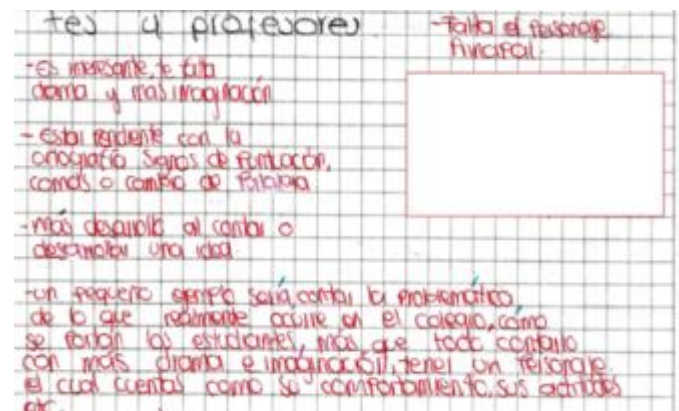 tes y profesores
-Falta el personaje
principal.
-Es interesante, te falta
drama y más imaginación
-Estar pendente con la
ortografía signos de puntuación,
comas o cambio de palabra
-más desarrollo al contar o
desarrollar una idea
-un pequeño ejemplo sería, contar la problemática
de lo que realmente ocurre en el colegio, cómo
se portan los estudiantes, más que todo contarlo
con más drama e imaginación, tener un personaje
el cual cuentas como su comportamiento, sus actitudes
etc.